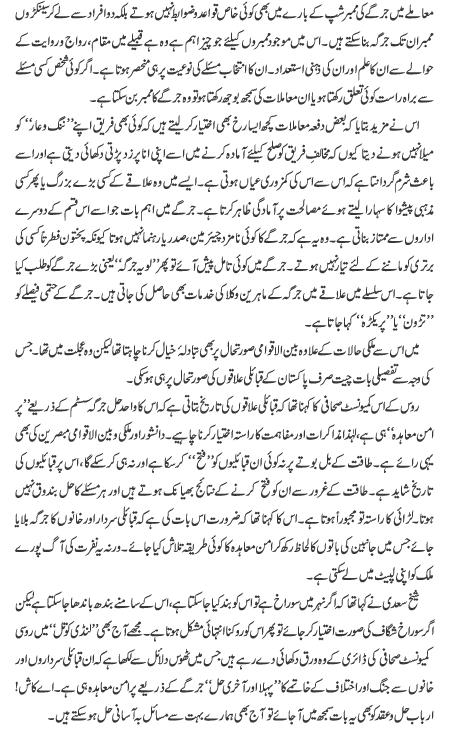 معاملے میں جرگے کی ممبر شپ کے بارے میں بھی کوئی خاص قواعد و ضوابط نہیں ہوتے بلکہ دو افراد سے لے کر سینکڑوں
ممبران تک جرگہ بنا سکتے ہیں۔ اس میں موجود ممبروں کیلئے جو چیز اہم ہے وہ ہے قبیلے میں مقام، رواج و روایت کے
حوالے سے ان کا علم اور ان کی ذہنی استعداد۔ ان کا انتخاب مسئلے کی نوعیت پر ہی منحصر ہوتا ہے۔ اگر کوئی شخص کسی مسئلے
سے براہ راست کوئی تعلق رکھتا ہو یا ان معاملات کی سمجھ بوجھ رکھتا ہو تو وہ جرگے کا ممبر بن سکتا ہے۔
اس نے مزید بتایا کہ بعض دفعہ معاملات کچھ ایسا رخ بھی اختیار کر لیتے ہیں کہ کوئی بھی فریق اپنے ’’ننگ و عار‘‘ کو
میلا نہیں ہونے دیتا کیوں کہ مخالف فریق کو صلح کیلئے آمادہ کرنے میں اسے اپنی انا پر زد پڑتی دکھائی دیتی ہے اور اسے
باعث شرم گردانتا ہے کہ اس سے اس کی کمزوری عیاں ہوتی ہے۔ ایسے میں وہ علاقے کے کسی بڑے بزرگ یا پھر کسی
مذہبی پیشوا کا سہارا لیتے ہوئے مصالحت پر آمادگی ظاہر کرتا ہے۔ جرگے میں اہم بات جو اسے اس قسم کے دوسرے
اداروں سے ممتاز بناتی ہے۔ وہ یہ ہے کہ جرگے کا کوئی نامزد چیئرمین، صدر یا رہنما نہیں ہوتا کیونکہ پختون فطرتاً کسی کی
برتری کو ماننے کے لئے تیار نہیں ہوتے۔ جرگے میں کوئی تامل پیش آئے تو پھر ’’لویہ جرگہ‘‘ یعنی بڑے جرگے کو طلب کیا
جاتا ہے۔ اس سلسلے میں علاقے میں جرگہ کے ماہرین وکلا کی خدمات بھی حاصل کی جاتی ہیں۔ جرگے کے حتمی فیصلے کو
’’تڑون‘‘ یا ’’پریکڑہ‘‘ کہا جاتا ہے۔
میں اس سے ملکی حالات کے علاوہ بین الاقوامی صورتحال پر بھی تبادلۂ خیال کرنا چاہتا تھا لیکن وہ عجلت میں تھا۔ جس
کی وجہ سے تفصیلی بات چیت صرف پاکستان کے قبائلی علاقوں کی صورتحال پر ہی ہو سکی۔
روس کے اس کمیونسٹ صحافی کا کہنا تھا کہ قبائلی علاقوں کی تاریخ بتاتی ہے کہ اس کا واحد حل جرگہ سسٹم کے ذریعے ’’پر
امن معاہدہ‘‘ ہی ہے، لہٰذا مذاکرات اور مفاہمت کا راستہ اختیار کرنا چاہیے۔ دانشور اور ملکی و بین الاقوامی مبصرین کی بھی
یہی رائے ہے۔ طاقت کے بل بوتے پر نہ کوئی ان قبائلیوں کو ’’فتح‘‘ کر سکا ہے اور نہ ہی کر سکے گا، اس پر قبائلیوں کی
تاریخ شاہد ہے۔ طاقت کے غرور سے ان کو فتح کرنے کے نتائج بھیانک ہوتے ہیں اور ہر مسئلے کا حل بندوق نہیں
ہوتا۔ لڑائی کا راستہ تو مجبوراً ہوتا ہے۔ اس کا کہنا تھا کہ ضرورت اس بات کی ہے کہ قبائلی سردار اور خانوں کا جرگہ بلایا
جائے جس میں جانبین کی باتوں کا لحاظ رکھ کر امن معاہدہ کا کوئی طریقہ تلاش کیا جائے۔ ورنہ یہ نفرت کی آگ پورے
ملک کو اپنی لپیٹ میں لے سکتی ہے۔
شیخ سعدی نے کہا تھا کہ اگر نہر میں سوراخ ہے تو اس کو بند کیا جا سکتا ہے، اس کے سامنے بندھ باندھا جا سکتا ہے لیکن
اگر سوراخ شگاف کی صورت اختیار کر جائے تو پھر اس کو روکنا انتہائی مشکل ہوتا ہے۔ مجھے آج بھی ’’لنڈی کوتل‘‘ میں روسی
کمیونسٹ صحافی کی ڈائری کے وہ ورق دکھائی دے رہے ہیں جس میں ٹھوس دلائل سے لکھا ہے کہ ان قبائلی سرداروں اور
خانوں سے جنگ اور اختلاف کے خاتمے کا ’’پہلا اور آخری حل‘‘ جرگے کے ذریعے پر امن معاہدہ ہی ہے۔ اے کاش!
ارباب حل و عقد کو بھی یہ بات سمجھ میں آ جائے تو آج بھی ہمارے بہت سے مسائل بہ آسانی حل ہو سکتے ہیں۔